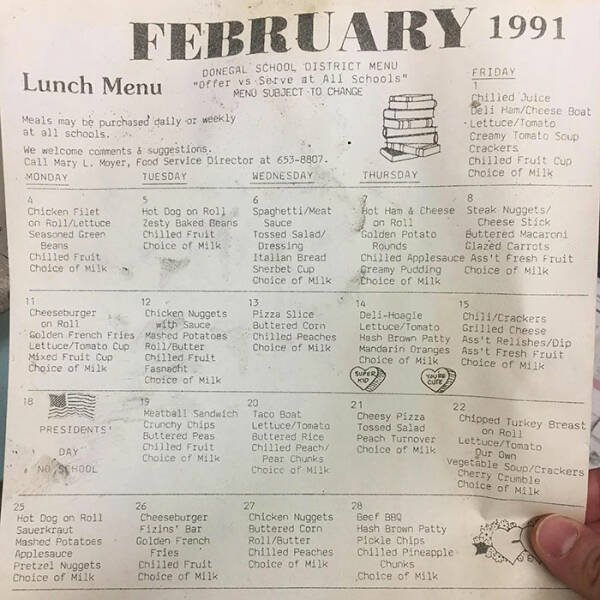 FEBRUARY 1991
Lunch Menu
DONEGAL SCHOOL DISTRICT MENU
"Offer vs Serve at All Schools"
MENU SUBJECT TO CHANGE
Meals may be purchased daily or weekly
at all schools.
We welcome comments & suggestions.
Call Mary L. Moyer, Food Service Director at 653-8807.
FRIDAY
1
Chilled Juice
Deli Ham/Cheese Boat
Lettuce/Tomato
Creamy Tomato Soup
Crackers
Chilled Fruit Cup
Choice of Milk
MONDAY
TUESDAY
WEDNESDAY
THURSDAY
4
Chicken Filet
on Roll/Lettuce
Seasoned Green
Beans
Chilled Fruit
Choice of Milk
5
Hot Dog on Roll
Zesty Baked Beans
Chilled Fruit
Choice of Milk
6
Spaghetti/Meat
Sauce
Tossed Salad/
Dressing
Italian Bread
Sherbet Cup
Choice of Milk
7
Hot Ham & Cheese
on Roll
Golden Potato
Rounds
Chilled Applesauce
Creamy Pudding
Choice of Milk
8
Steak Nuggets/
Cheese Stick
Buttered Macaroni
Glazed Carrots
Ass't Fresh Fruit
Choice of Milk
11
Cheeseburger
on Roll
Golden French Fries
Lettuce/Tomato Cup
Mixed Fruit Cup
Choice of Milk
12
Chicken Nuggets
with Sauce
Mashed Potatoes
Roll/Butter
Chilled Fruit
Fasnacht
Choice of Milk
13
Pizza Slice
Buttered Corn
Chilled Peaches
Choice of Milk
14
Deli-Hoagie
Lettuce/Tomato
Hash Brown Patty
Mandarin Oranges
Choice of Milk
SUPER
KID
15
Chili/Crackers
Grilled Cheese
Ass't Relishes/Dip
Ass't Fresh Fruit
Choice of Milk
YOU'RE
CUTE
18
PRESIDENTS'
DAY
NO SCHOOL
19
Meatball Sandwich
Crunchy Chips
Buttered Peas
Chilled Fruit
Choice of Milk
20
Taco Boat
Lettuce/Tomato
Buttered Rice
Chilled Peach/
Pear Chunks
Choice of Milk
21
Cheesy Pizza
Tossed Salad
Peach Turnover
Choice of Milk
22
Chipped Turkey Breast
on Roll
Lettuce/Tomato
Our Own
Vegetable Soup/Crackers
Cherry Crumble
Choice of Milk
25
Hot Dog on Roll
Sauerkraut
Mashed Potatoes
Applesauce
Pretzel Nuggets
Choice of Milk
26
Cheeseburger
Fixins' Bar
Golden French
Fries
Chilled Fruit
Choice of Milk
27
Chicken Nuggets
Buttered Corn
Roll/Butter
Chilled Peaches
Choice of Milk
28
Beef BBQ
Hash Brown Patty
Pickle Chips
Chilled Pineapple
Chunks
Choice of Milk